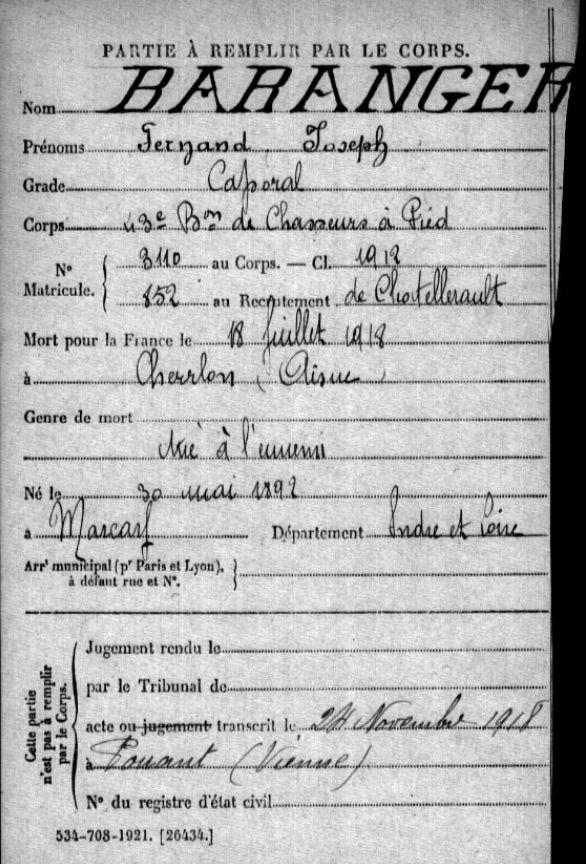 PARTIE À REMPLIR PAR LE CORPS.
Nom BARANGER
Prénoms Fernand Joseph
Grade Caporal
Corps 43e Bon de Chasseurs à Pied
N° Matricule. 3110 au Corps. — Cl. 1912
852 au Recrutement de Chatellerault
Mort pour la France le 18 Juillet 1918
à (Aisne)
Genre de mort
tué à l'ennemi
Né le 30 mai 1892
à Département Indre et Loire
Arrt municipal (pr Paris et Lyon),
à défaut rue et N°.
Cette partie
n'est pas à remplir
par le Corps.
Jugement rendu le
par le Tribunal de
acte ou jugement transcrit le 24 Novembre 1918
à Pouant (Vienne)
N° du registre d'état civil
534-708-1921. [26434.]